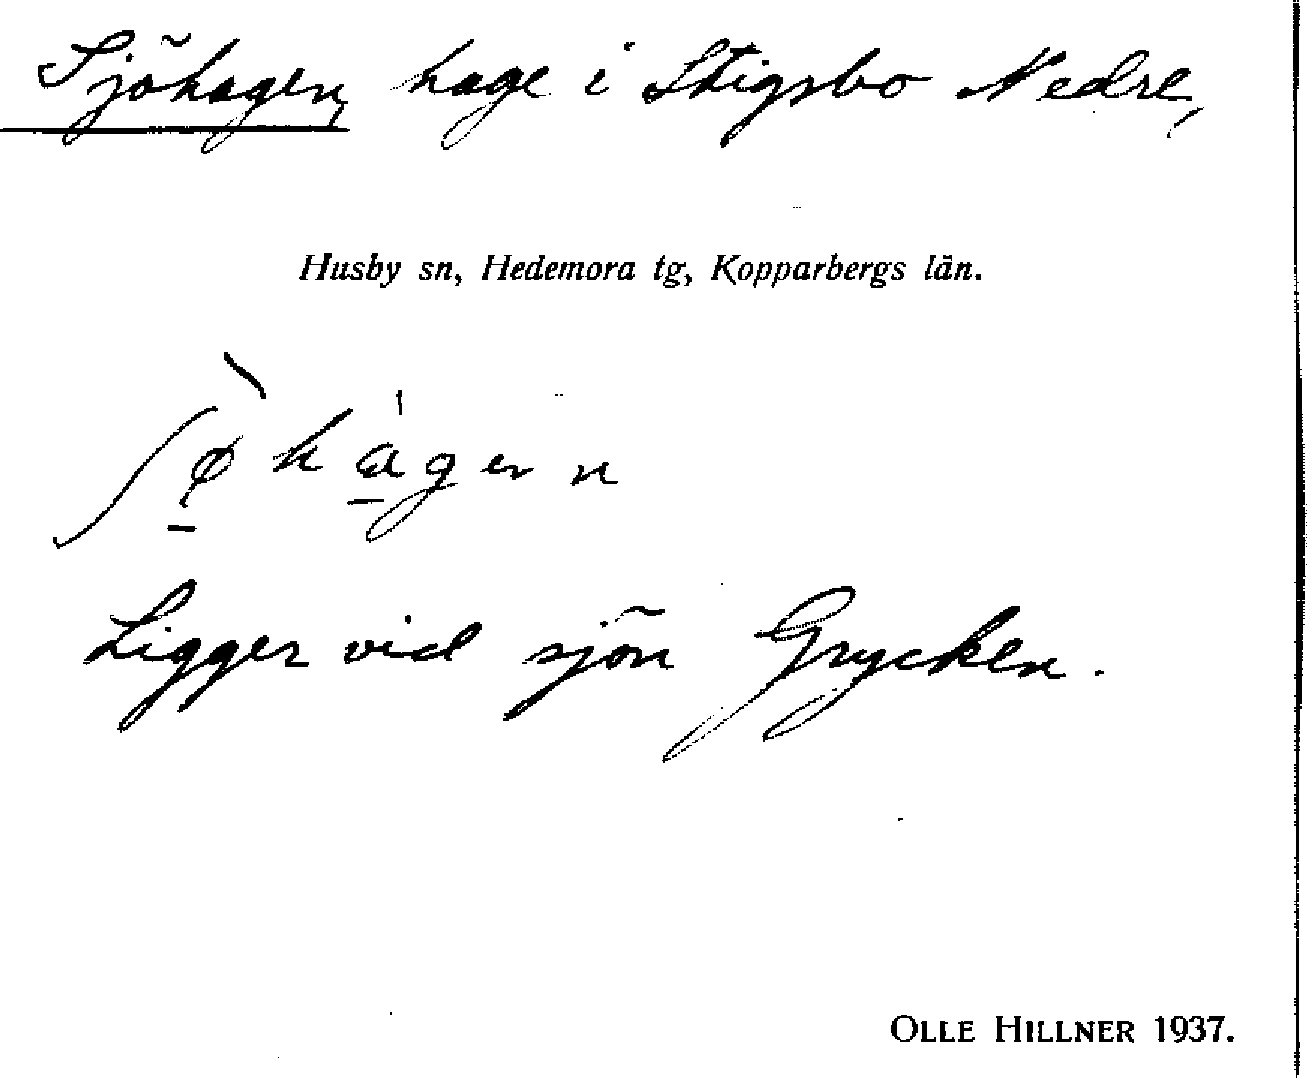 Sjöhagen, hage i Stigsbo Nedre,
Husby sn, Hedemora tg, Kopparbergs län.
Ligger vid sjön Grycken.
OLLE HILLNER 1937.